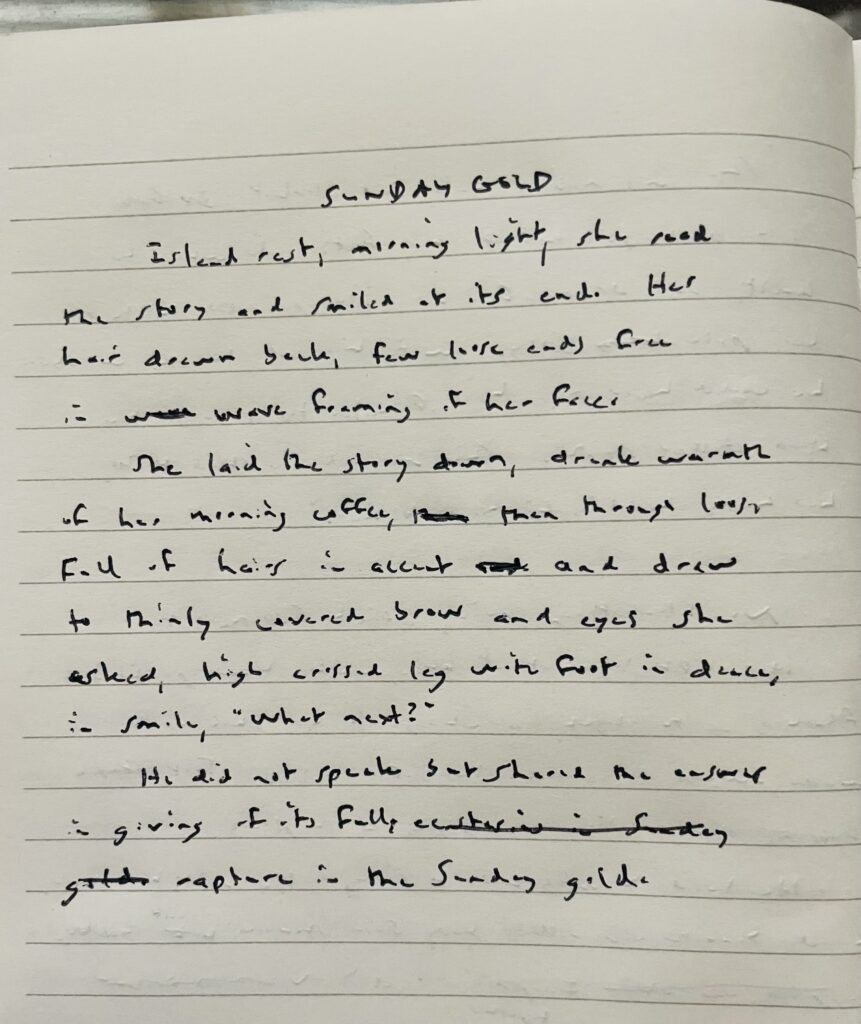 SUNDAY GOLD
Island rest, morning light, she read
the story and smiled at its end. Her
hair drawn back, few loose ends free
in wave framing of her face.
She laid the story down, drank warmth
of her morning coffee, then through loose
fall of hairs in accent and draw
to thinly covered brow and eyes she
asked, high crossed leg with foot in dance,
in smile, "What next?"
He did not speak but shared the answer
in giving of its full, ecstasies in Sunday
gold. rapture in the Sunday gold.